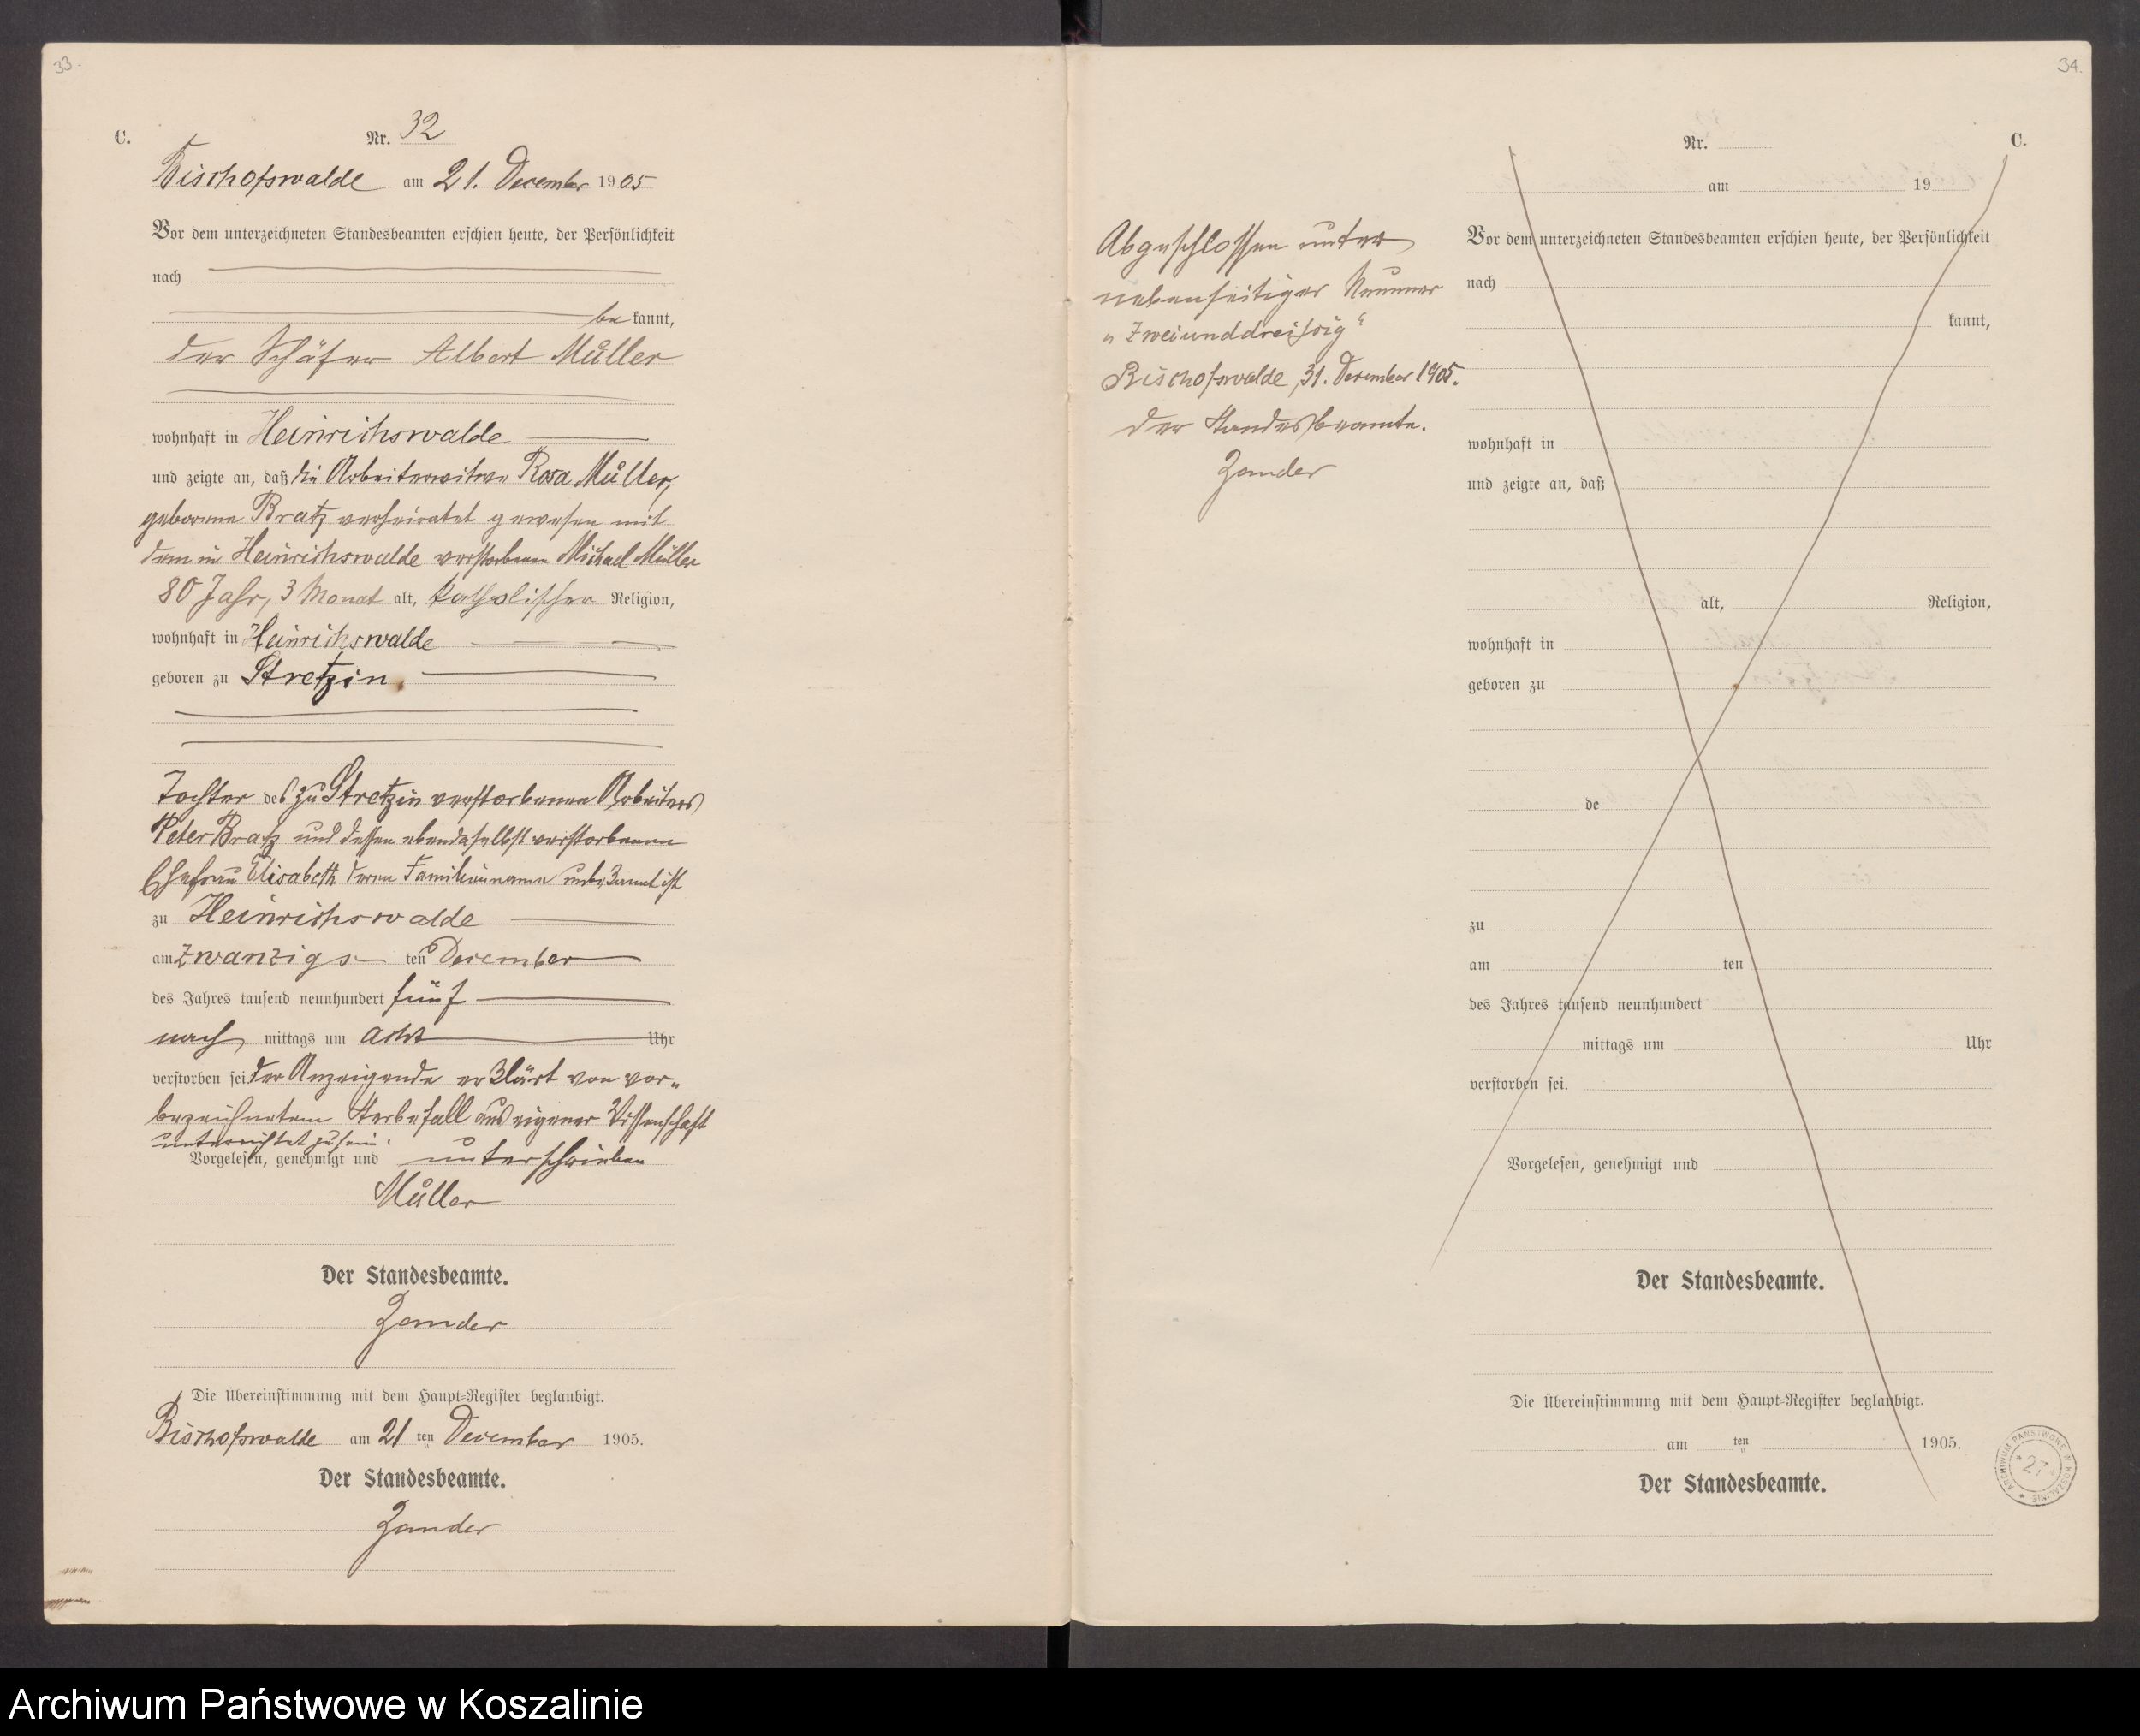 33.
C.
Nr. 32
Bischofswalde am 21. December 1905
Vor dem unterzeichneten Standesbeamten erschien heute, der Persönlichkeit
nach
be kannt,
der Schäfer Albert Müller
wohnhaft in Heinrichswalde
und zeigte an, daß die Arbeiterwitwe Rosa Müller,
geborene Bratz verheiratet gewesen mit
dem in Heinrichswalde verstorbenen Michael Müller
80 Jahr, 3 Monat alt, katholischer Religion,
wohnhaft in Heinrichswalde
geboren zu Stretzin.
Tochter des zu Stretzin verstorbenen Arbeiters
Peter Bratz und dessen ebendaselbst verstorbenen
Ehefrau Elisabeth deren Familienname unbekannt ist
zu Heinrichswalde
am zwanzigs ten December
des Jahres tausend neunhundert fünf
nach mittags um acht Uhr
verstorben sei der Anzeigende erklärt von vor„
bezeichnetem Sterbefall aus eigener Wissenschaft
unterrichtet zu sein.
Vorgelesen, genehmigt und unterschrieben
Müller
Der Standesbeamte.
Zander
Die Übereinstimmung mit dem Haupt-Register beglaubigt.
Bischofswalde am 21 ten December 1905.
Der Standesbeamte.
Zander
34.
Abgeschlossen unter
nebenseitiger Nummer
„Zweiunddreissig“
Bischofswalde, 31. December 1905.
Der Standesbeamte.
Zander
Nr.
C.
am 19
Vor dem unterzeichneten Standesbeamten erschien heute, der Persönlichkeit
nach
kannt,
wohnhaft in
und zeigte an, daß
alt, Religion,
wohnhaft in
geboren zu
de
zu
am ten
des Jahres tausend neunhundert
mittags um Uhr
verstorben sei.
Vorgelesen, genehmigt und
Der Standesbeamte.
Die Übereinstimmung mit dem Haupt-Register beglaubigt.
am ten 1905.
Der Standesbeamte.
ARCHIWUM PAŃSTWOWE W KOSZALINIE
27
Archiwum Państwowe w Koszalinie